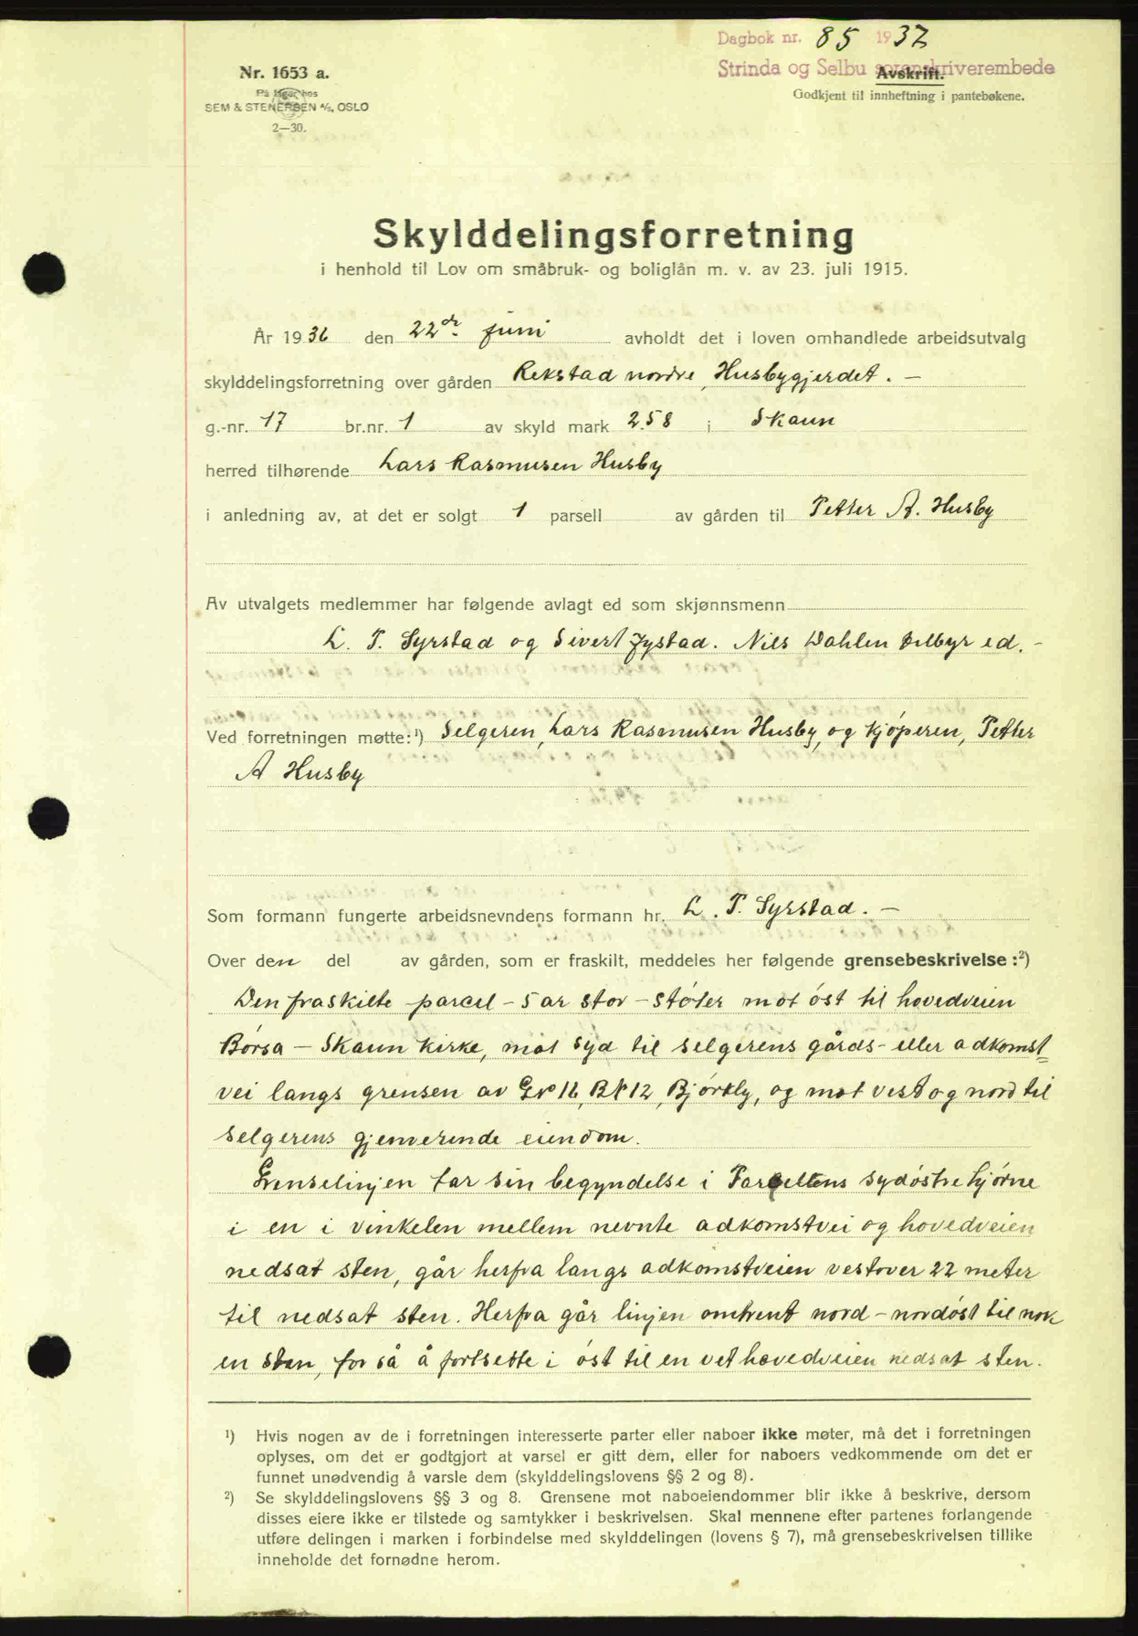 Dagbok nr. 85 1937
Strinda og Selbu sorenskriverembede
Nr. 1653 a.
På lager hos
SEM & STENERSEN A/S, OSLO
2—30.
Avskrift.
Godkjent til innheftning i pantebøkene.
Skylddelingsforretning
i henhold til Lov om småbruk- og boliglån m. v. av 23. juli 1915.
År 1936 den 22de juni avholdt det i loven omhandlede arbeidsutvalg
skylddelingsforretning over gården Rekstad nordre, Husbygjerdet. —
g.-nr. 17 br.nr. 1 av skyld mark 2.58 i Skaun
herred tilhørende Lars Rasmusen Husby
i anledning av, at det er solgt 1 parsell av gården til Petter A. Husby
Av utvalgets medlemmer har følgende avlagt ed som skjønnsmenn
L. T. Syrstad og Sivert Jystad. Nils Dahlen ed. -
Ved forretningen møtte:¹) Selgeren, Lars Rasmusen Husby, og kjøperen, Petter
A Husby
Som formann fungerte arbeidsnevndens formann hr. L. T. Syrstad. —
Over den del av gården, som er fraskilt, meddeles her følgende grensebeskrivelse:²)
Den fraskilte parcel - 5 ar stor - støter mot øst til hovedveien
Børsa - Skaun kirke, mot syd til selgerens gårds- eller adkomst-
vei langs grensen av GN 16, BN 12, Bjørkly, og mot vest og nord til
selgerens gjenverende eiendom.
Grenselinjen tar sin begyndelse i Parcellens sydøstre hjørne
i en i vinkelen mellem nevnte adkomstvei og hovedveien
nedsat sten, går herfra langs adkomstveien vestover 22 meter
til nedsat sten. Herfra går linjen omtrent nord - nordøst til nok
en sten, for så å fortsette i øst til en vet hovedveien nedsat sten.
¹) Hvis nogen av de i forretningen interesserte parter eller naboer ikke møter, må det i forretningen
oplyses, om det er godtgjort at varsel er gitt dem, eller for naboers vedkommende om det er
funnet unødvendig å varsle dem (skylddelingslovens §§ 2 og 8).
²) Se skylddelingslovens §§ 3 og 8. Grensene mot naboeiendommer blir ikke å beskrive, dersom
disses eiere ikke er tilstede og samtykker i beskrivelsen. Skal mennene efter partenes forlangende
utføre delingen i marken i forbindelse med skylddelingen (lovens § 7), må grensebeskrivelsen tillike
inneholde det fornødne herom.